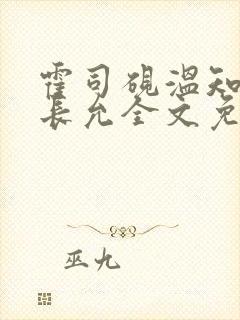 霍司砚温知
长允全文免
巫九